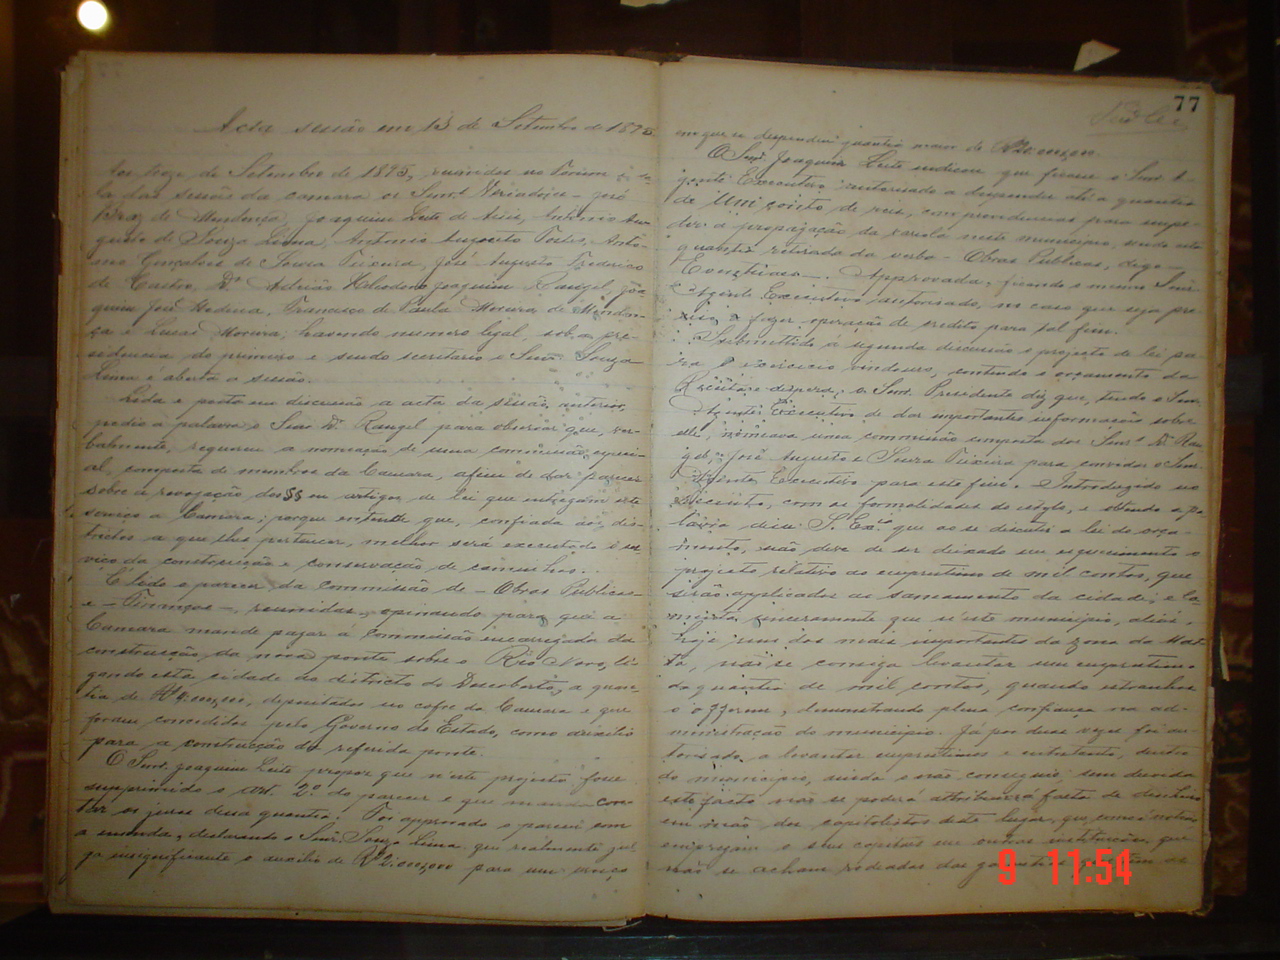 Acta sessão em 13 de Setembro de 1895
Aos treze de Setembro de 1895, reunidos no Forum e sa-
la das sessão da camara os Senrs Vereadores José
Braz de Mendonça, Joaquim Leite de Assis, Antonio Au-
gusto de Souza Lima, Antonio Augusto Tostes, Anto-
nio Gonçalves de Souza Teixeira, José Augusto Frederico
de Castro, Dr Adrião Heliodoro Joaquim Rangel, Joa-
quim José Medina, Francisco de Paula Moreira de Mendon-
ça e Lucas Moreira; havendo numero legal, sob a pre-
sidencia do primeiro e sendo secretario o Senr Souza
Lima é aberta a sessão.
Lida e posta em discussão a acta da sessão anterior,
pedio a palavra o Senr Dr Rangel para observar que, ver-
balmente, requereu a nomeação de uma commissão especi-
al, composta de membros da Camara, afim de dar parecer
sobre a revogação dos §§ ou artigos de lei que entregam este
serviço a Camara; porque entende que, confiada aos dis-
trictos a que lhes pertencer, melhor será executado o ser
viço da construcção e conservação de caminhos.
É lido o parecer da commissão de - Obras Publicas
e - Finanças -, reunidas, opinando para que a
Camara mande pagar a Commissão encarregada da
construcção da nova ponte sobre o Rio Novo, li-
gando esta cidade ao districto do Descoberto, a quan-
tia de depositados no cofre da Camara e que
foram concedidos pelo Governo do Estado, como auxilio
para a construcção da referida ponte.
O Senr. Joaquim Leite propoz que n'este projecto fosse
supprimido o art. 2º do parecer e que manda con-
tar os juros dessa quantia. Foi approvado o parecer com
a emenda, declarando o Senr. Souza Lima, que realmente jul
ga insignificante o auxilio de Rs 2:000,000 para um serviço
77
em que se despendeu quantia maior de
O Senr. Joaquim Leite indicou que ficasse o Senr. A-
gente Executivo autorisado a despender até a quantia
de Um conto de reis, com providencias para impe-
dir a propagação da variola neste municipio, sendo esta
quantia retirada da verba - Obras Publicas, digo -
Eventuaes -. Approvada, ficando o mesmo Senr.
Agente Executivo autorisado, no caso que seja pre-
ciso, a fazer operação de credito para tal fim.
Submettido a segunda discussão o projecto de lei pa-
ra o exercicio vindouro, contendo o orçamento da
Receita e despeza, o Senr. Presidente diz que, tendo o Senr.
Agente Executivo de dar importante informação sobre
elle, nomeava uma commissão composta dos Senrs. Dr. Ran
gel, José Augusto e Souza Teixeira para convidar o Senr.
Agente Executivo para este fim. Introduzido no
recinto, com as formalidades do estylo, e obtendo a pa-
lavra disse S. Exa. que ao se discutir a lei do orça-
mento, não deve de ser deixado em esquecimento o
projecto relativo ao emprestimo de mil contos, que
serão applicados ao saneamento da cidade; e la-
menta sinceramente que n'este municipio, aliás,
hoje, um dos mais importantes da zona da Mat-
ta, não se consiga levantar um emprestimo
da quantia de mil contos, quando estranhos
o offerecem, demonstrando plena confiança na ad-
ministração do municipio. Já por duas vezes foi au-
torisado a levantar emprestimos e entretanto, dentro
do municipio, ainda o não conseguio; sem duvida
este facto não se poderá attribuir á falta de dinheiro
em mão dos capitalistas deste lugar, que, como é notorio,
empregam o seus capitaes em outras instituições, que
não se acham rodeadas das garantias
9 11:54